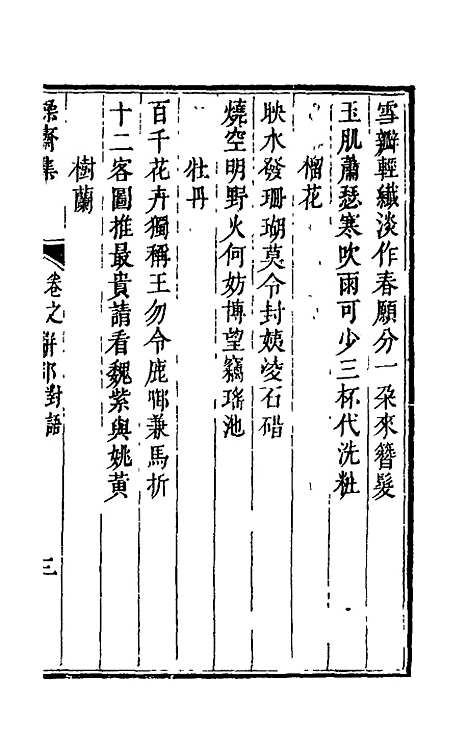 雪瓣輕纖淡作春願分一朶來簪髮
玉肌蕭瑟寒吹雨可少三杯代洗粧
榴花
映水發珊瑚莫令封姨凌石醋
燒空明野火何妨博望竊瑤池
牡丹
百千花卉獨稱王勿令鹿啣兼馬折
十二客圖推最貴請看魏紫與姚黃
樹蘭
齋集
卷之
對語
三